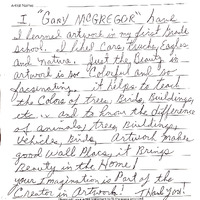 I, "GARY McGREGOR" have
learned artwork in my first Grade
School. I liked Cars, Trucks, Eagles
and Nature. Just the Beauty in
artwork is so "Colorful and "so
fascinating. it helps to teach
the Colors of trees, Birds, Buildings,
etc... and to know the difference
of animals, trees, Buildings,
Vehicles, Birds. Artwork makes
good Wall Places, it Brings
Beauty in the Home!
your Imagination is Part of the
Creator in Artwork! Thank You!